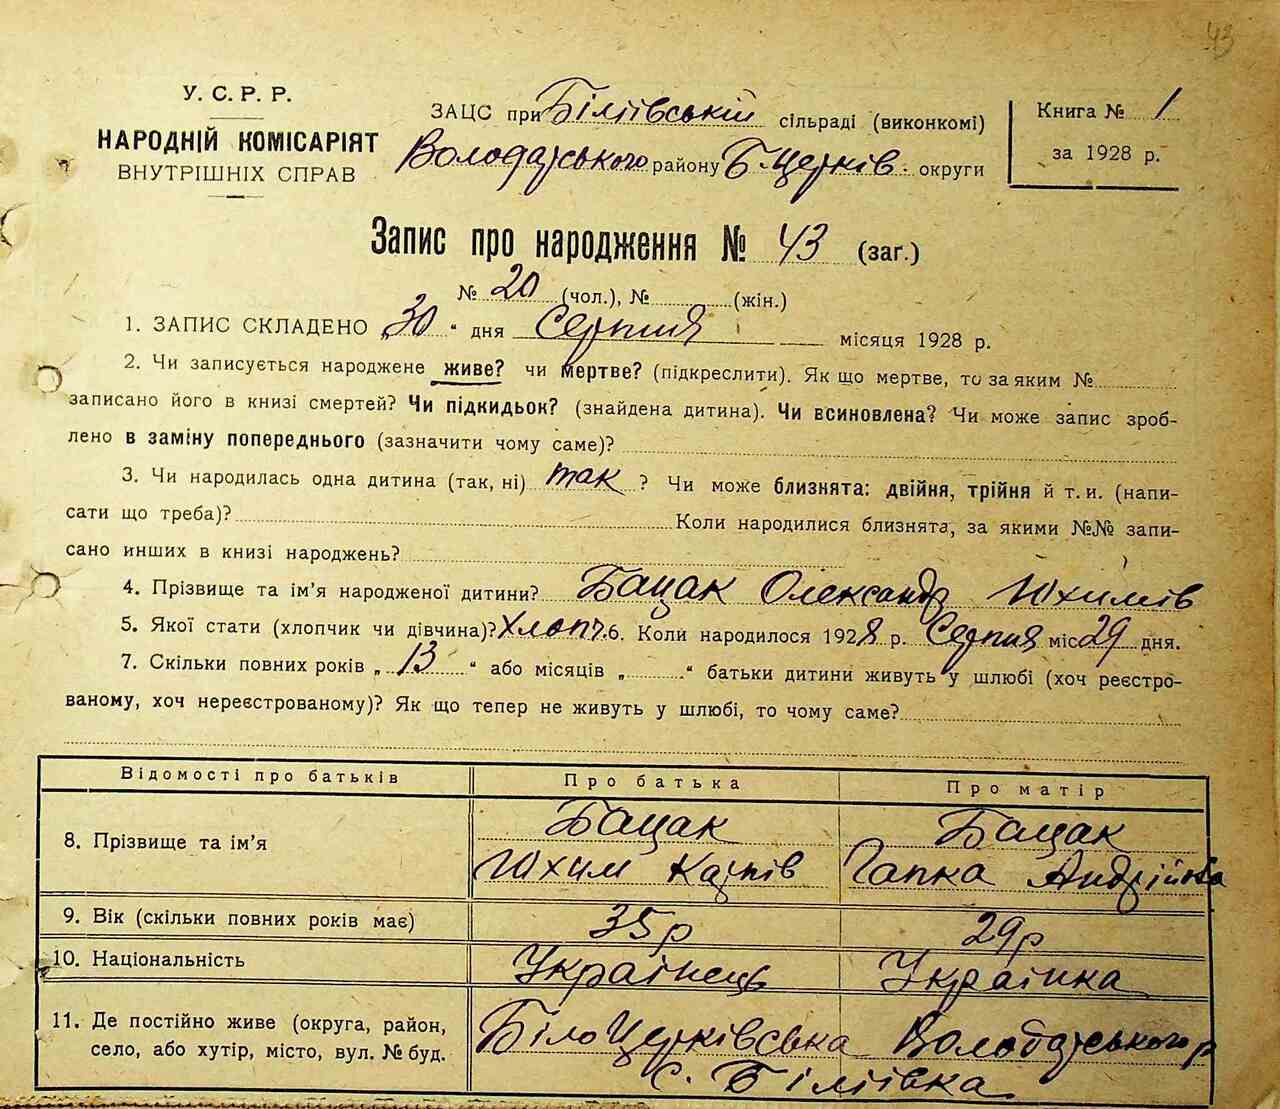 43
У. С. Р. Р.
НАРОДНІЙ КОМІСАРІЯТ
ВНУТРІШНІХ СПРАВ
ЗАЦС при Біліївській сільраді (виконкомі)
Володарського району Б-Церків. округи
Книга № 1
за 1928 р.
Запис про народження № 43 (заг.)
№ 20 (чол.), № (жін.)
1. ЗАПИС СКЛАДЕНО „30“ дня Серпня місяця 1928 р.
2. Чи записується народжене живе? чи мертве? (підкреслити). Як що мертве, то за яким №
записано його в книзі смертей? Чи підкидьок? (знайдена дитина). Чи всиновлена? Чи може запис зроб-
лено в заміну попереднього (зазначити чому саме)?
3. Чи народилась одна дитина (так, ні) так ? Чи може близнята: двійня, трійня й т. и. (напи-
сати що треба)? Коли народилися близнята, за якими №№ запи-
сано инших в книзі народжень?
4. Прізвище та ім'я народженої дитини? Бацак Олександр Юхимів
5. Якої стати (хлопчик чи дівчина)? Хлопч. 6. Коли народилося 1928 р. Серпня міс 29 дня.
7. Скільки повних років „13“ або місяців „ “ батьки дитини живуть у шлюбі (хоч реєстро-
ваному, хоч нереєстрованому)? Як що тепер не живуть у шлюбі, то чому саме?
Відомості про батьків Про батька Про матір
8. Прізвище та ім'я Бацак Бацак
Юхим Карпів Гапка Андрійівна
9. Вік (скільки повних років має) 35р 29р
10. Національність Українець Українка
11. Де постійно живе (округа, район, БілоЦерківська Володарського р
село, або хутір, місто, вул. № буд. с. Біліївка